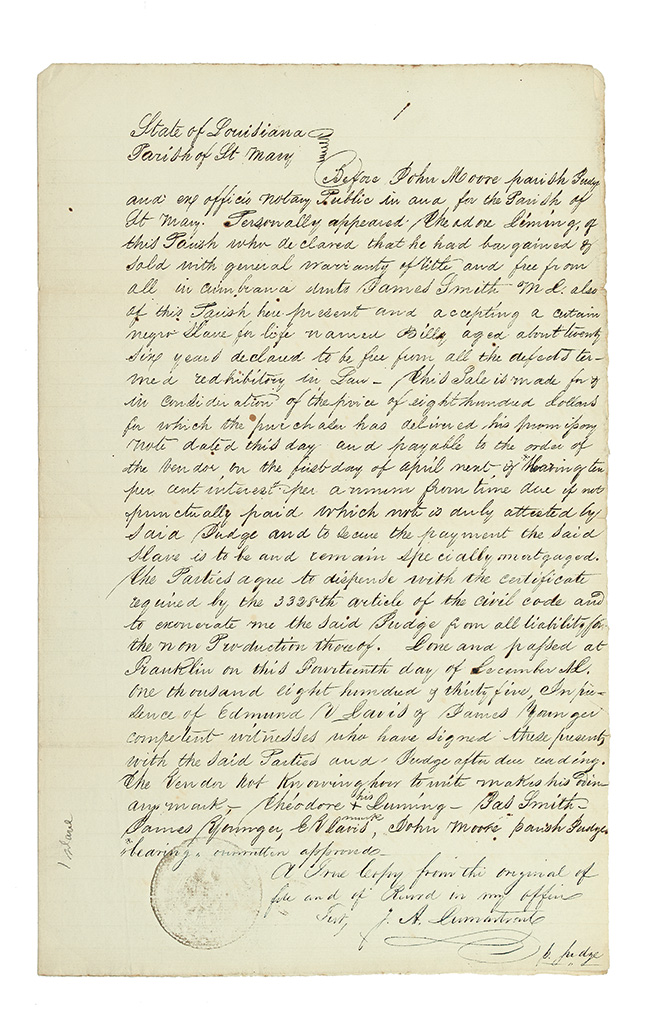 1
State of Louisiana
Parish of St Mary
Before John Moore parish Judge
and exg officio notary Public in and for the Parish of
St Mary. Personally appeared Theodore Diming, of
this Parish who declared that he had bargained &
Sold with general warranty of title and free from
all incumbrance unto James Smith M D. also
of this Parish here present and accepting a certain
negro Slave for life named Billy aged about twenty
six years declared to be free from all the defects ter-
med redhibitory in Law - This Sale is made for &
in consideration of the price of eight hundred dollars
for which the purchaser has delivered his promissory
note dated this day and payable to the order of
the vendor on the first day of april next & "bearing ten
per cent interest" per annum from time due if not
punctually paid which note is duly attested by
said Judge and to secure the payment the said
slave is to be and remain specially mortgaged.
The Parties agree to dispense with the certificate
required by the 3328th article of the Civil code and
to exonerate me the said Judge from all liability for
the non Production thereof. Done and passed at
Franklin on this Fourteenth day of December AD.
one thousand eight hundred & thirty five, In pre-
sence of Edmund V Davis & James Younger
competent witnesses who have signed these presents
with the said Parties and Judge after due reading.
The Vendor not Knowing how to write makes his Ordin-
ary mark, - Théodore his + mark Duming - Jas Smith
James Younger, E V Davis, John Moore parish Judge
"bearing" ommitten approved -
A True Copy from the original of
file and of Record in my office
Test, J. A. Dumartrait
P. Judge
1 slave